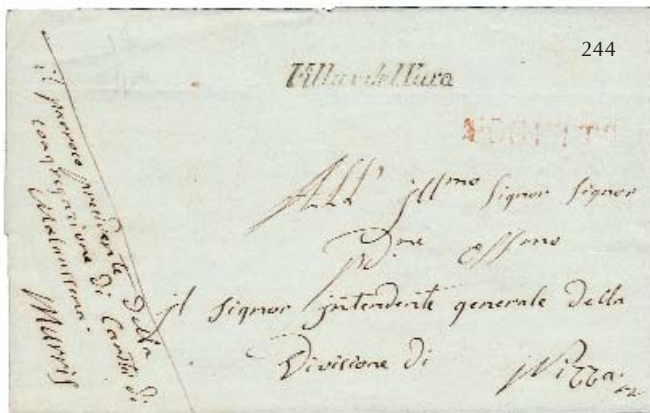 244
Villar del Varo
All' Ill.mo Signor Signor
P.ne Oss.mo
il Signor intendente generale della
Divisione di Nizza.
il parroco presidente della
congregazione di Carità di
Malaussena.